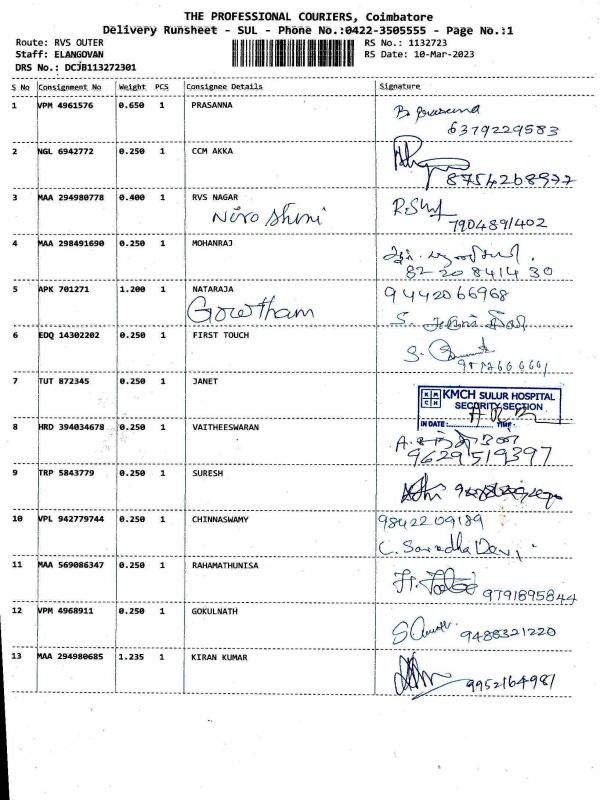 THE PROFESSIONAL COURIERS, Coimbatore
Delivery Runsheet - SUL - Phone No.:0422-3505555 - Page No.:1
Route: RVS OUTER
RS No.: 1132723
Staff: ELANGOVAN
RS Date: 10-Mar-2023
DRS No.: DCJB113272301
S No Consignment No Weight PCS Consignee Details Signature
1 VPM 4961576 0.650 1 PRASANNA
6379229583
2 NGL 6942772 0.250 1 CCM AKKA
8754268977
3 MAA 294980778 0.400 1 RVS NAGAR
Niroshini
7904891402
4 MAA 298491690 0.250 1 MOHANRAJ
82 20 8414 30
5 APK 701271 1.200 1 NATARAJA 9442066968
Gowtham
6 EDQ 14302202 0.250 1 FIRST TOUCH
7 TUT 872345 0.250 1 JANET
KMCH SULUR HOSPITAL
SECURITY SECTION
IN DATE: TIME
8 HRD 394034678 0.250 1 VAITHEESWARAN
9629519397
9 TRP 5843779 0.250 1 SURESH
10 VPL 942779744 0.250 1 CHINNASWAMY 9842209189
C. Saradha Devi
11 MAA 569086347 0.250 1 RAHAMATHUNISA
9791895844
12 VPM 4968911 0.250 1 GOKULNATH
9488321220
13 MAA 294980685 1.235 1 KIRAN KUMAR
9952164981